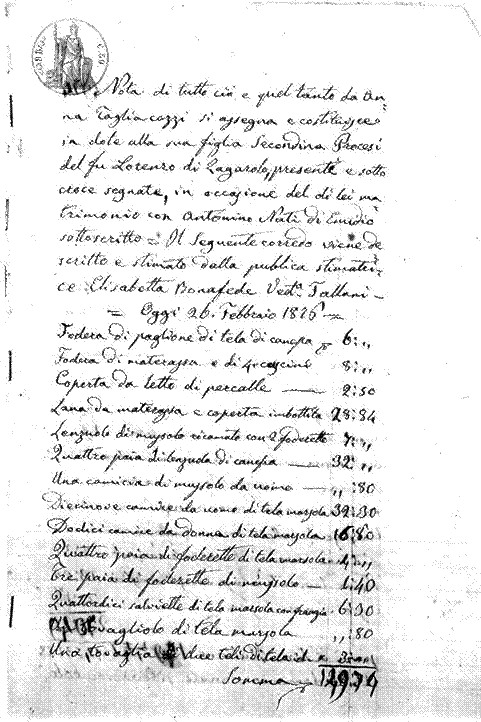 Nota di tutto ciò e quel tanto da An=
na Tagliacozzi si assegna e costituisce
in dote alla sua figlia Secondina Procesi
del fu Lorenzo di Gagarolo, presente e sotto
croce segnata, in occasione del di lei ma
trimonio con Antonino Nati di Emidio
sottoscritto = Il seguente corredo viene de
scritto e stimato dalla publica stimatri=
ce Elisabetta Bonafede Ved.ª Tallani =
= Oggi 26. Febbraio =
Fodera di paglione di tela di canepa 6:,,
Fodera di materassa e di 4 coscini 8:,,
Coperta da letto di percalle — 2:50
Lana da materassa e coperta imbottita 28:84
Lenzuolo di musolo ricamato con 2 foderette 7:,,
Quattro paia di lenzuola di canepa — 32:,,
Una camicia di musolo da uomo — ,,:80
Diecinove camice da uomo di tela marsola 32:30
Dodici camice da donna di tela marsola 16:80
Quattro paia di foderette di tela marsola 4:,,
Tre paia di foderette di musolo — 1:40
Quattordici salviette di tela marsola con frangia 6:30
tovagliolo di tela marsola ,,:80
Una tovaglia di due teli di tela
Somma